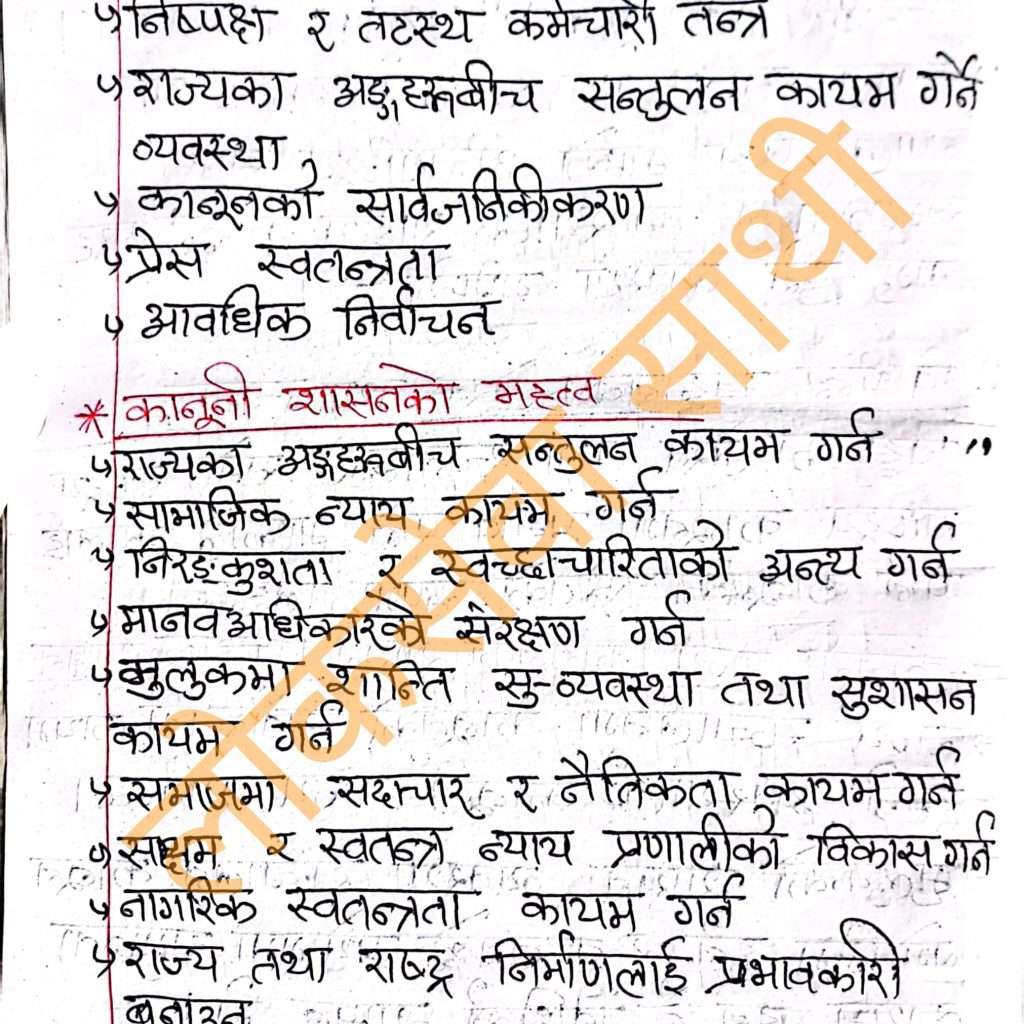 निष्पक्ष र तटस्थ कर्मचारी तन्त्र
राज्यका अङ्गहरूबीच सन्तुलन कायम गर्ने
व्यवस्था
कानूनको सार्वजनिकीकरण
प्रेस स्वतन्त्रता
आवधिक निर्वाचन
* कानूनी शासनको महत्व
राज्यका अङ्गहरूबीच सन्तुलन कायम गर्न
सामाजिक न्याय कायम गर्न
निरङ्कुशता र स्वच्छाचारिताको अन्त्य गर्न
मानवअधिकारको संरक्षण गर्न
मुलुकमा शान्ति सु-व्यवस्था तथा सुशासन
कायम गर्न
समाजमा सदाचार र नैतिकता कायम गर्न
सक्षम र स्वतन्त्र न्याय प्रणालीको विकास गर्न
नागरिक स्वतन्त्रता कायम गर्न
राज्य तथा राष्ट्र निर्माणलाई प्रभावकारी
बनाउन
लोकसेवा साथी